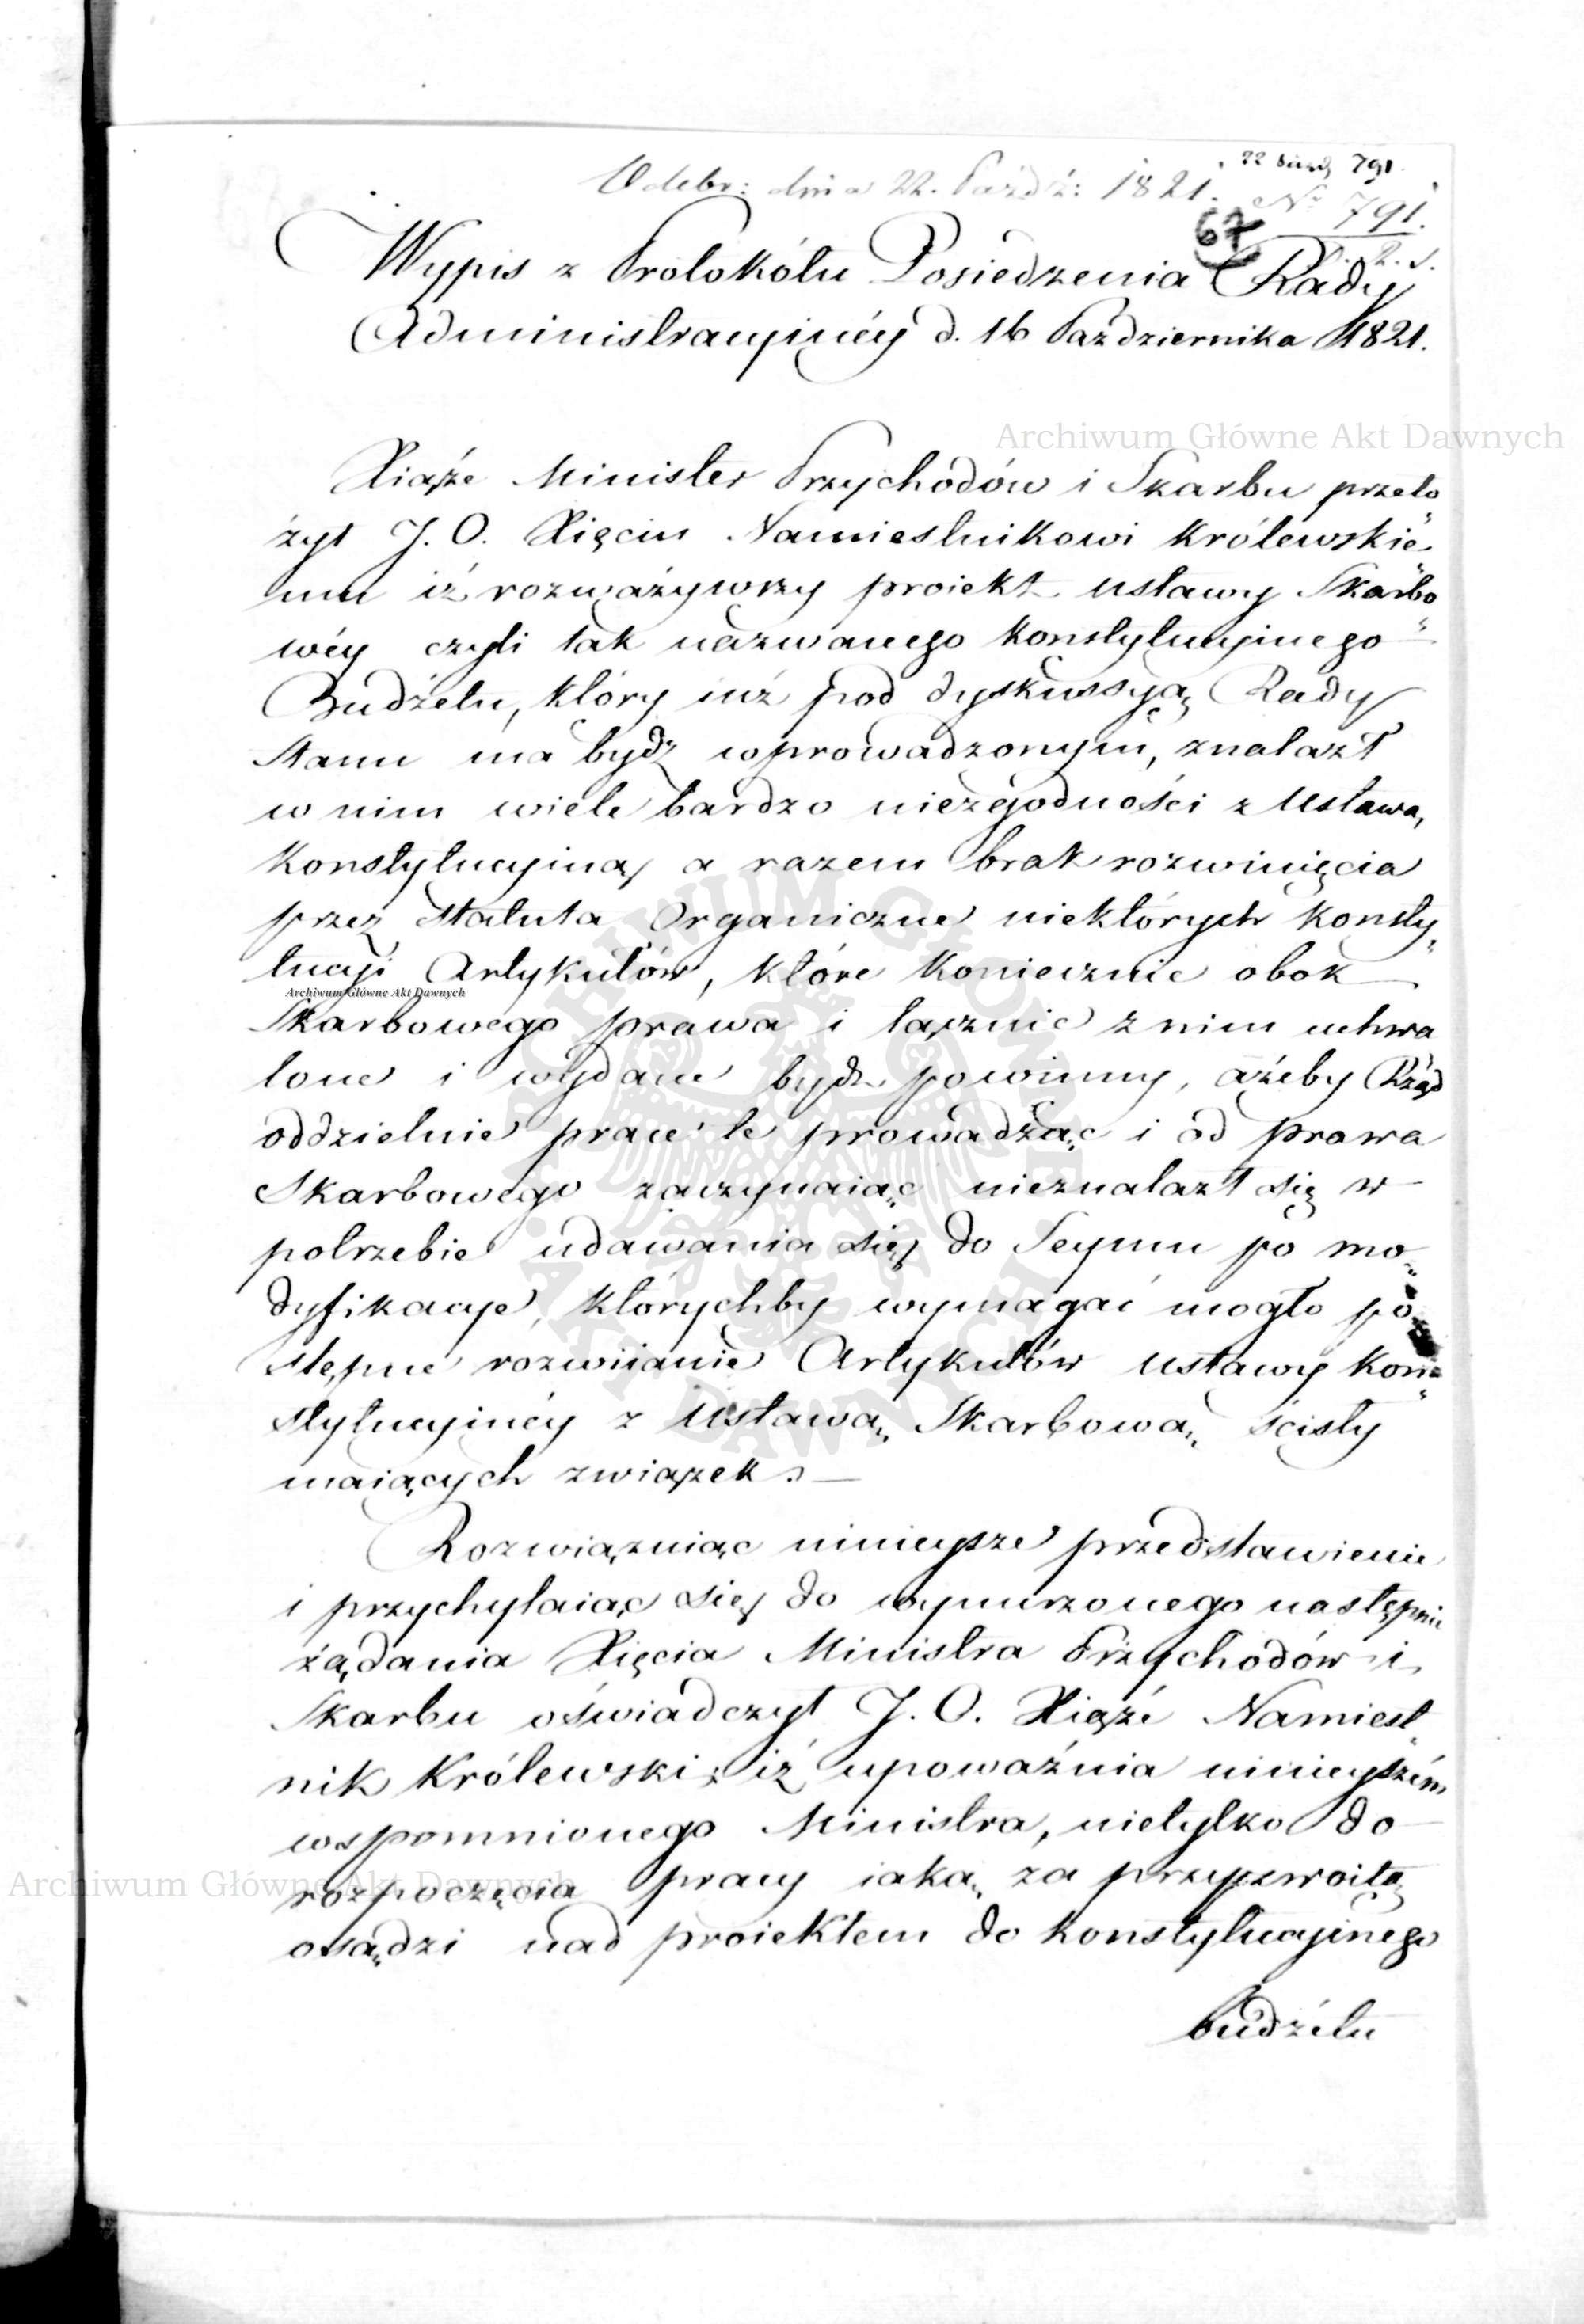 Odebr: dnia 22. Paźdź: 1821.
22 Paźdź 791.
No 791.
67
Wypis z Protokółu Posiedzenia Rady
Administracyinéy d. 16 Października 1821.
Archiwum Główne Akt Dawnych
Xiąże Minister Przychodów i Skarbu przeło
żył J. O. Xięciu Namiestnikowi Królewskié-
mu iż rozważywszy proiekt Ustawy Skarbo
wéy czyli tak nazwanego Konstytucyinego
Budżetu, który iuż pod dyskussyą Rady
Stanu ma bydź wprowadzonym, znalazł
w nim wiele bardzo niezgodności z Ustawą
Konstytucyiną a razem brak rozwinięcia
przez Statuta Organiczne niektórych Konsty
tucyi Artykułów, które koniecznie obok
Archiwum Główne Akt Dawnych
Skarbowego prawa i łącznie z nim uchwa
lone i wydane bydź powinny, ażeby Rząd
oddzielnie prace te prowadząc i od prawa
Skarbowego zaczynaiąc nieznalazł się w
potrzebie udawania się do Seymu po mo-
dyfikacye, którychby wymagać mogło po
stępne rozwiianie Artykułów Ustawy Kon-
stytucyinéy z Ustawą Skarbową ścisły
maiących związek.
Rozwiązuiąc ninieysze przedstawienie
i przychylaiąc się do wynurzonego następnie
żądania Xięcia Ministra Przychodów i
Skarbu oświadczył J. O. Xiąże Namiest
nik Królewski, iż upoważnia ninieyszém
wspomnionego Ministra, nietylko do
Archiwum Główne Akt Dawnych
rozpoczęcia pracy iaką za przyzwoitą
osądzi nad proiektem do Konstytucyinego
budżetu
ARCHIWUM GŁÓWNE AKT DAWNYCH